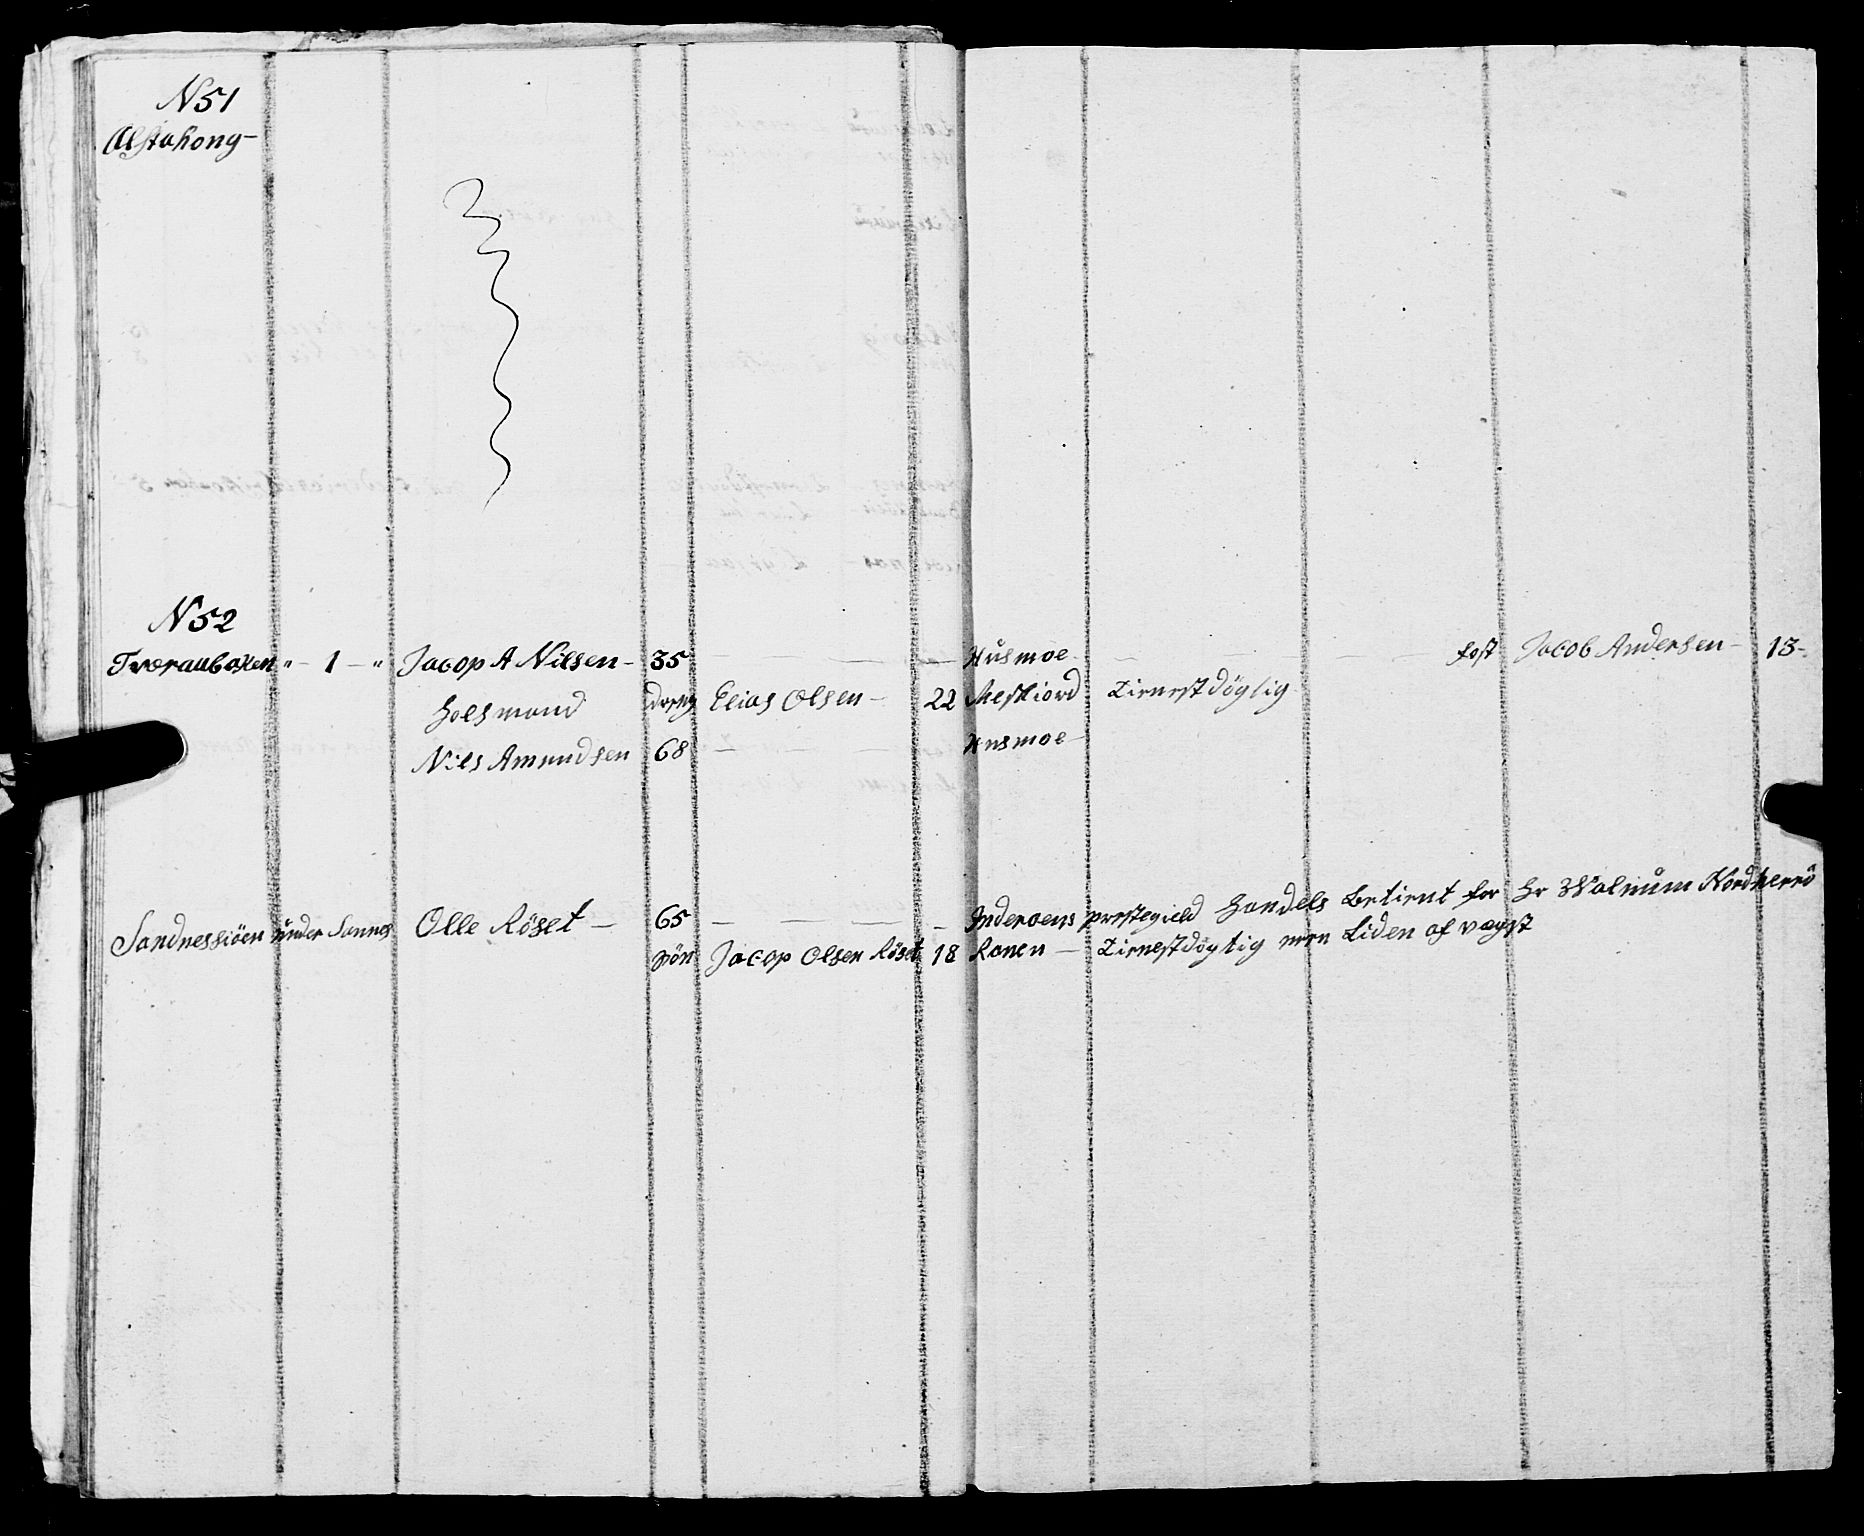 N 51
Alstahong-
N 52
Tveraabaken " - 1 - " Jacop A Nilsen - 35 - - - Husmoe - - - fost Jacob Andersen - 13-
Holsmand dreng Elias Olsen - 22 Mefkiord Tienestdögtig
Nils Amundsen 68 - - Husmoe -
Sandnessiöen under Sannes Olle Röset - 65 - - - Inderoens prestegield Handels betient for Hr Walnum Nordherrö
sön Jacop Olsen Röset 18 Ranen - Tienestdögtig men Liden af vægst